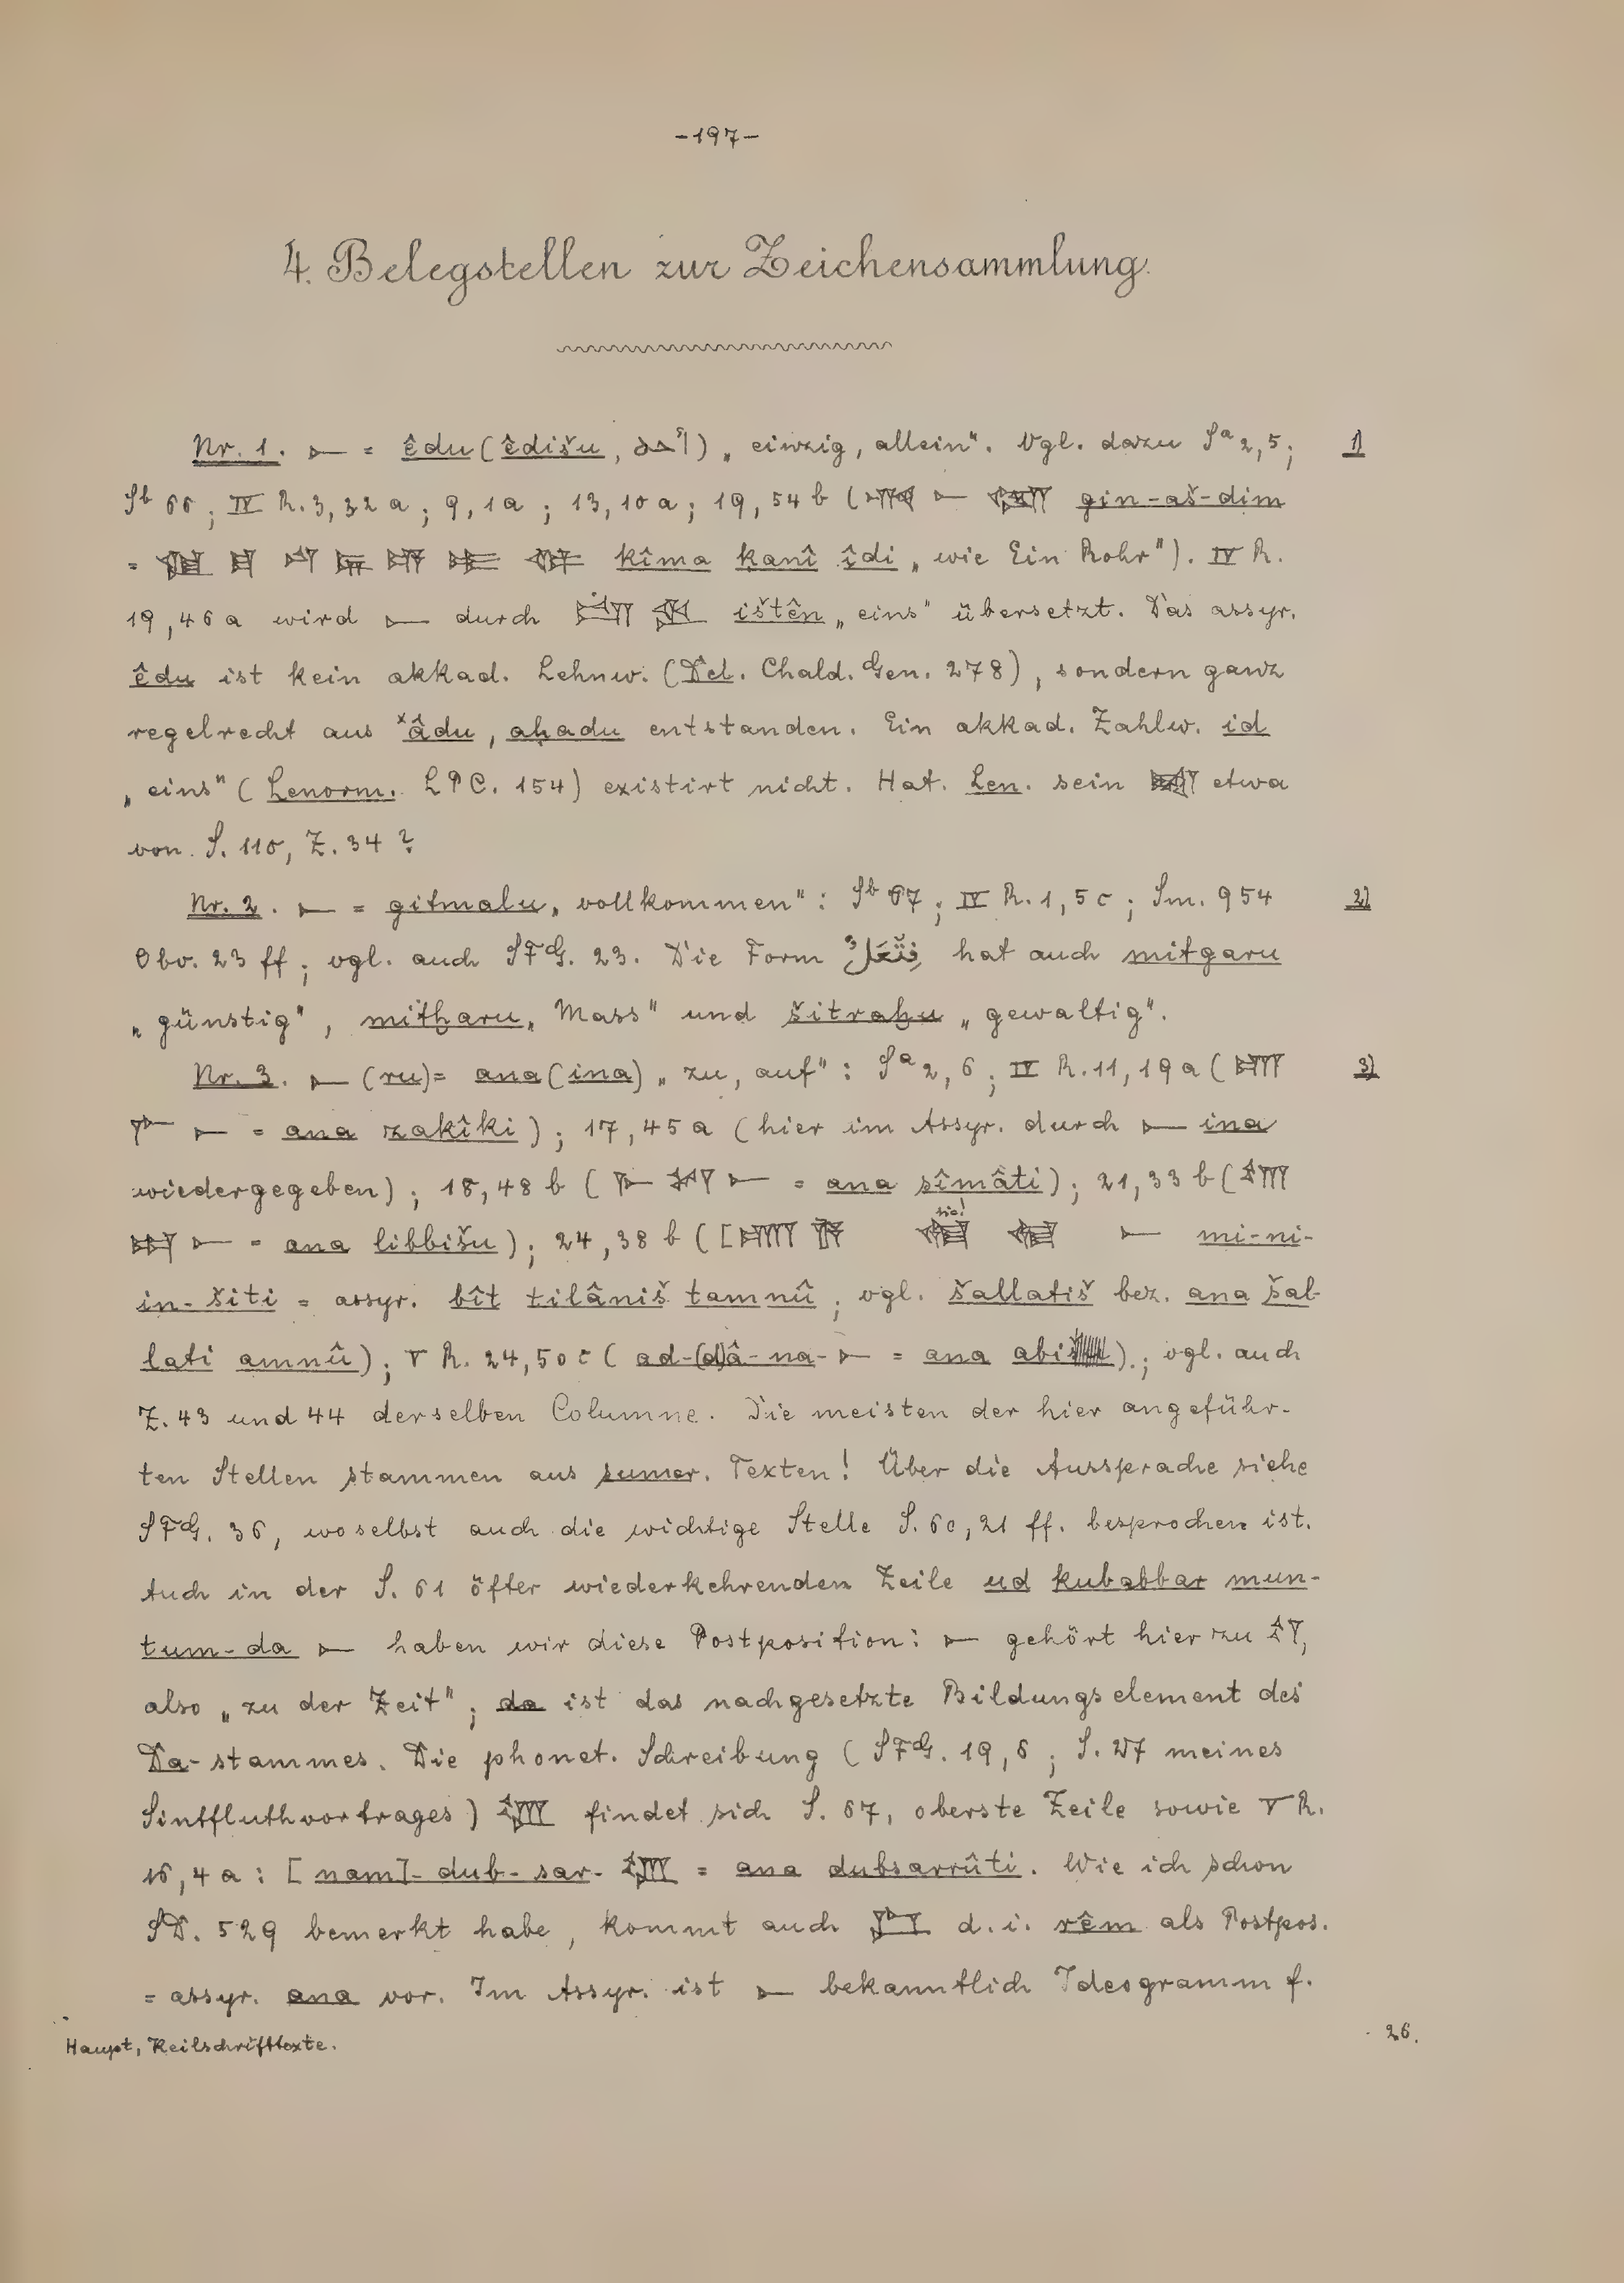 -197-
4. Belegstellen zur Zeichensammlung.
Nr. 1. 𒀸 = êdu (êdišu, ) „einzig, allein". Vgl. dazu Sᵃ 2,5; 1)
Sᵇ 66; IV R. 3,32a; 9,1a; 13,10a; 19,54b ( 𒀸 gin-aš-dim
= kîma kanî îdi „wie Ein Rohr"). IV R.
19,46a wird 𒀸 durch ištên „eins" übersetzt. Das assyr.
êdu ist kein akkad. Lehnw. (Del. Chald. Gen. 278), sondern ganz
regelrecht aus *âdu, aḫadu entstanden. Ein akkad. Zahlw. id
„eins" (Lenorm. LPC. 154) existirt nicht. Hat. Len. sein etwa
von S. 110, Z. 34?
Nr. 2. 𒀸 = gitmalu „vollkommen": Sᵇ 67; IV R. 1,5c; Sm. 954 2)
Obv. 23 ff; vgl. auch SFG. 23. Die Form hat auch mitgaru
„günstig", mitḫaru „Mass" und šitraḫu „gewaltig".
Nr. 3. 𒀸 (ru) = ana (ina) „zu, auf": Sᵃ 2,6; IV R. 11,19a ( 3)
𒀸 = ana zakîki); 17,45a (hier im Assyr. durch 𒀸 ina
wiedergegeben); 18,48b ( 𒀸 = ana sîmâti); 21,33b (
𒀸 = ana libbišu); 24,38b ([ sic! 𒀸 mi-ni-
in-šiti = assyr. bît tilâniš tamnû; vgl. šallatiš bez. ana šal-
lati amnû); V R. 24,50c (ad-(d)â-na-𒀸 = ana abi ); vgl. auch
Z. 43 und 44 derselben Columne. Die meisten der hier angeführ-
ten Stellen stammen aus sumer. Texten! Über die Aussprache siehe
SFG. 36, woselbst auch die wichtige Stelle S. 60,21 ff. besprochen ist.
Auch in der S. 61 öfter wiederkehrenden Zeile ud kubabbar mun-
tum-da 𒀸 haben wir diese Postposition: 𒀸 gehört hier zu 𒌓,
also „zu der Zeit"; da ist das nachgesetzte Bildungselement des
Da-stammes. Die phonet. Schreibung (SFG. 19,6; S. 27 meines
Sintfluthvortrages) findet sich S. 67, oberste Zeile sowie V R.
16,4a: [nam]-dub-sar- = ana dubsarrûti. Wie ich schon
SD. 529 bemerkt habe, kommt auch d. i. rêm als Postpos.
= assyr. ana vor. Im Assyr. ist 𒀸 bekanntlich Ideogramm f.
Haupt, Keilschrifttexte. 26.